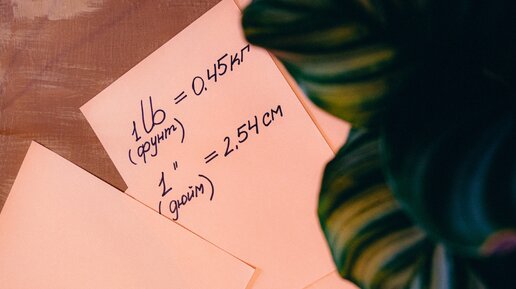 1 lb = 0.45 кг
(фунт)
1" = 2.54 см
(дюйм)